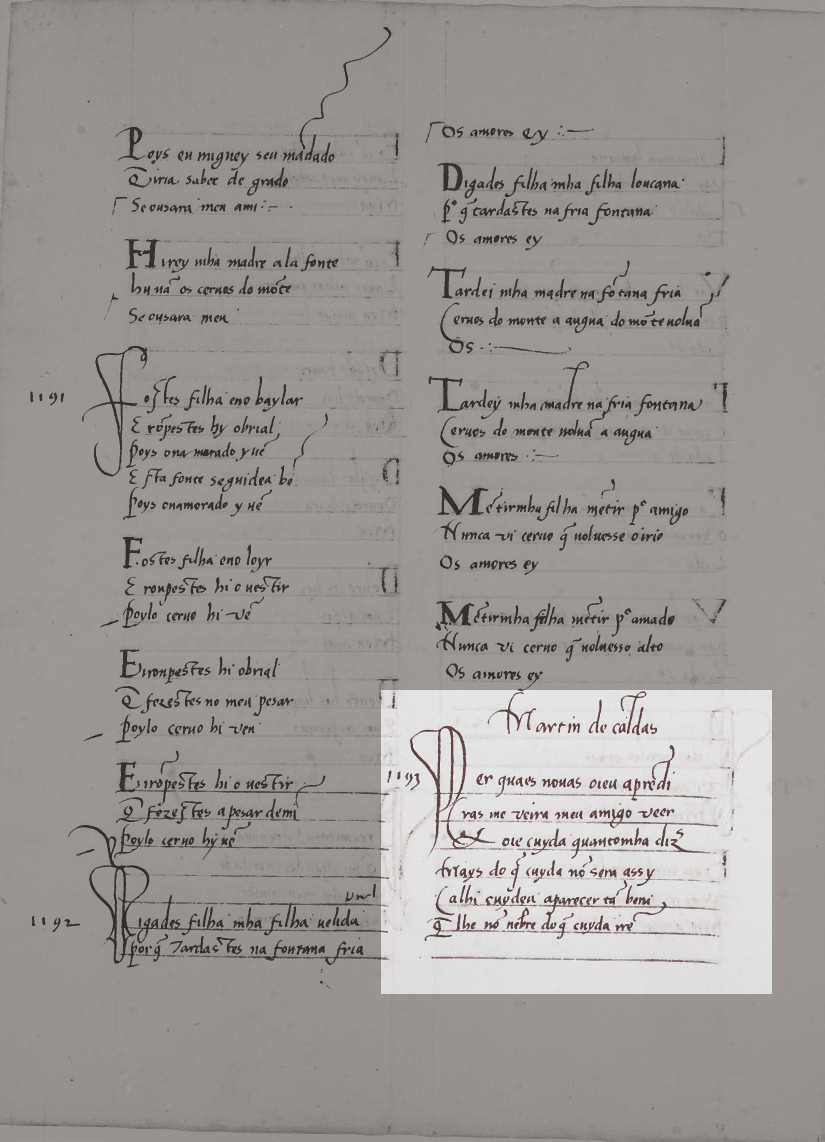 Poys eu migney seu madado
Q̃iria saber de grado
Se ousara meu ami
Hirey mha madre a la fonte
hu uã os ceruos do mõte
Se ousara meu
1191
Fostes filha eno baylar
E rõpestes hy obrial
Poys o namorado y uẽ
Esta fonte seguidea bẽ
Poys o namorado y uẽ
Fostes filha eno loyr
E ronpestes hi o uestir
Poylo ceruo hi uẽ
E ronpestes hi obrial
Q̃ fezestes no meu pesar
Poylo ceruo hi uen
E rrõpestes hi o uestir
Q̃ fezestes a pesar demi
Poylo ceruo hy uẽ
1192
Digades filha mha filha uelida
porq̃ Tardastes na fontana fria
Os amores ey
Digades filha mha filha loucana
p̃ q̃ tardastes na fria fontana
Os amores ey
Tardei mha madre na fõtana fria
Ceruos do monte a augua do mõte uoluã
Os
Tardey mha madre na fria fontana
Ceruos do monte uoluã a augua
Os amores
Mẽtir mha filha mẽtir pº amigo
Nunca vi ceruo q̃ uoluesse o irio
Os amores ey
Mẽtir mha filha mẽtir pº amado
Nunca vi ceruo q̃ uoluesso alto
Os amores ey
Martin de caldas
1193
Per quaes nouas oieu aprẽdi
Cras me veira meu amigo veer
oie cuyda quantomha diz̃
Mays do q̃ cuyda nõ sera assy
Ca lhi cuydeu aparecer tã beni
Q̃ lhe nõ nẽbre do q̃ cuyda rrẽ